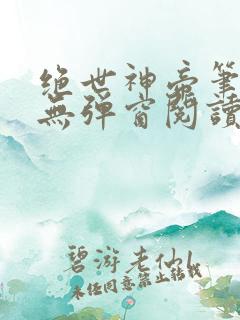 绝世神帝筆
無彈窗閱讀
碧游老仙
未经同意禁止转载